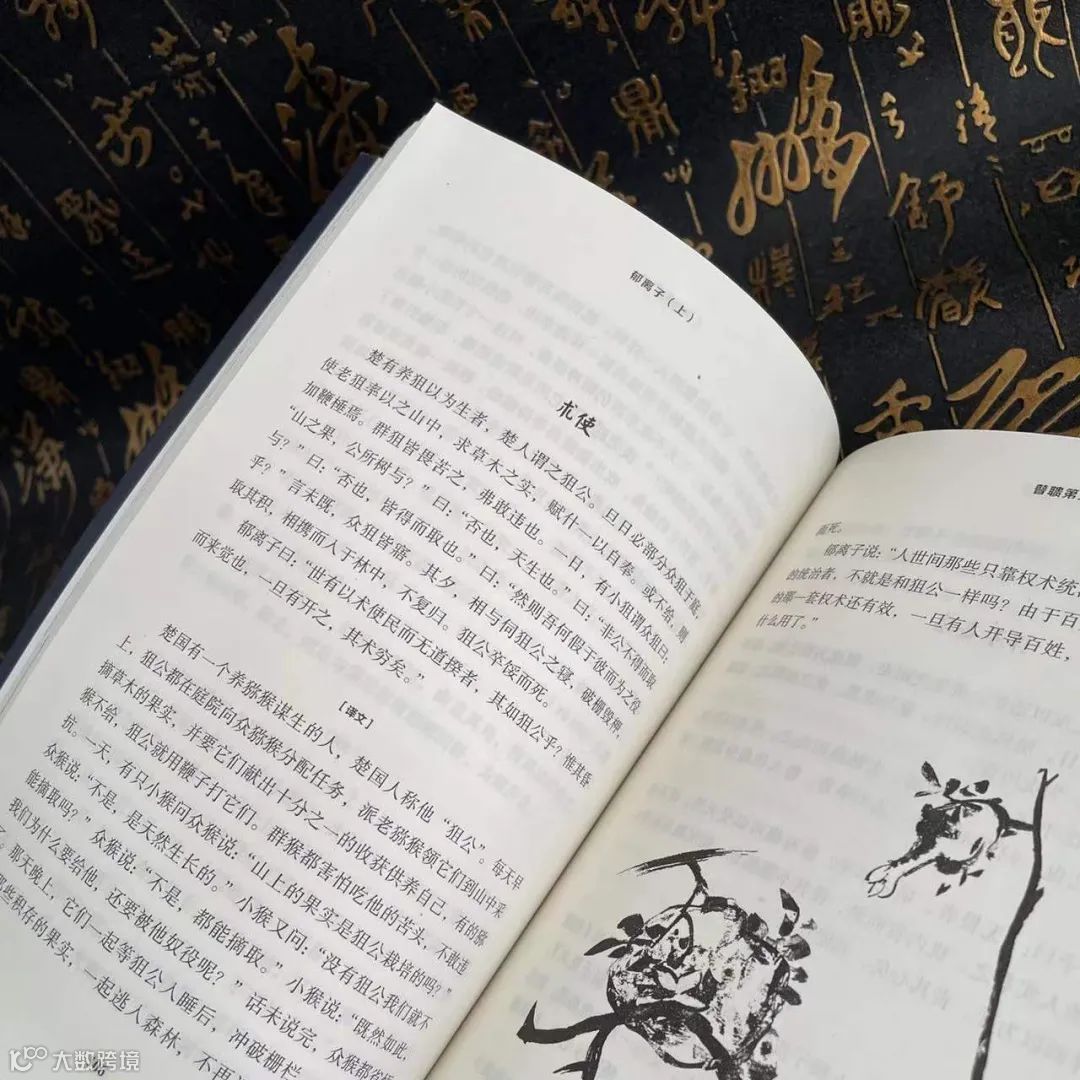 郁离子（上）
术使
楚有养狙以为生者，楚人谓之狙公。旦日必部分众狙于庭，
使老狙率以之山中，求草木之实，赋什一以自奉。或不给，则
加鞭棰焉。群狙皆畏苦之，弗敢违也。一日，有小狙谓众狙曰：
“山之果，公所树与？”曰：“否也，天生也。”曰：“非公不得而取
与？”曰：“否也，皆得而取也。”曰：“然则吾何假于彼而为之役
乎？”言未既，众狙皆寤。其夕，相与伺狙公之寝，破栅毁柙，
取其积，相携而入于林中，不复归。狙公卒馁而死。
郁离子曰：“世有以术使民而无道揆者，其如狙公乎？惟其昏
而未觉也，一旦有开之，其术穷矣。”
［译文］
楚国有一个养猕猴谋生的人，楚国人称他“狙公”。每天早
上，狙公都在庭院向众猕猴分配任务，派老猕猴领它们到山中采
摘草木的果实，并要它们献出十分之一的收获供养自己，有的猕
猴不给，狙公就用鞭子打它们。群猴都害怕吃他的苦头，不敢违
抗。一天，有只小猴问众猴说：“山上的果实是狙公栽培的吗？”
众猴说：“不是，是天然生长的。”小猴又问：“没有狙公我们就不
能摘取吗？”众猴说：“不是，都能摘取。”小猴说：“既然如此，
我们为什么要给他，还要被他奴役呢？”话未说完，众猴都省
了。那天晚上，它们一起等狙公入睡后，冲破栅栏，
那些积存的果实，一起逃入森林，不再
瞽聩第
而死。
郁离子说：“人世间那些只靠权术统
的统治者，不就是和狙公一样吗？由于百
的那一套权术还有效，一旦有人开导百姓，
什么用了。”
大数跨境